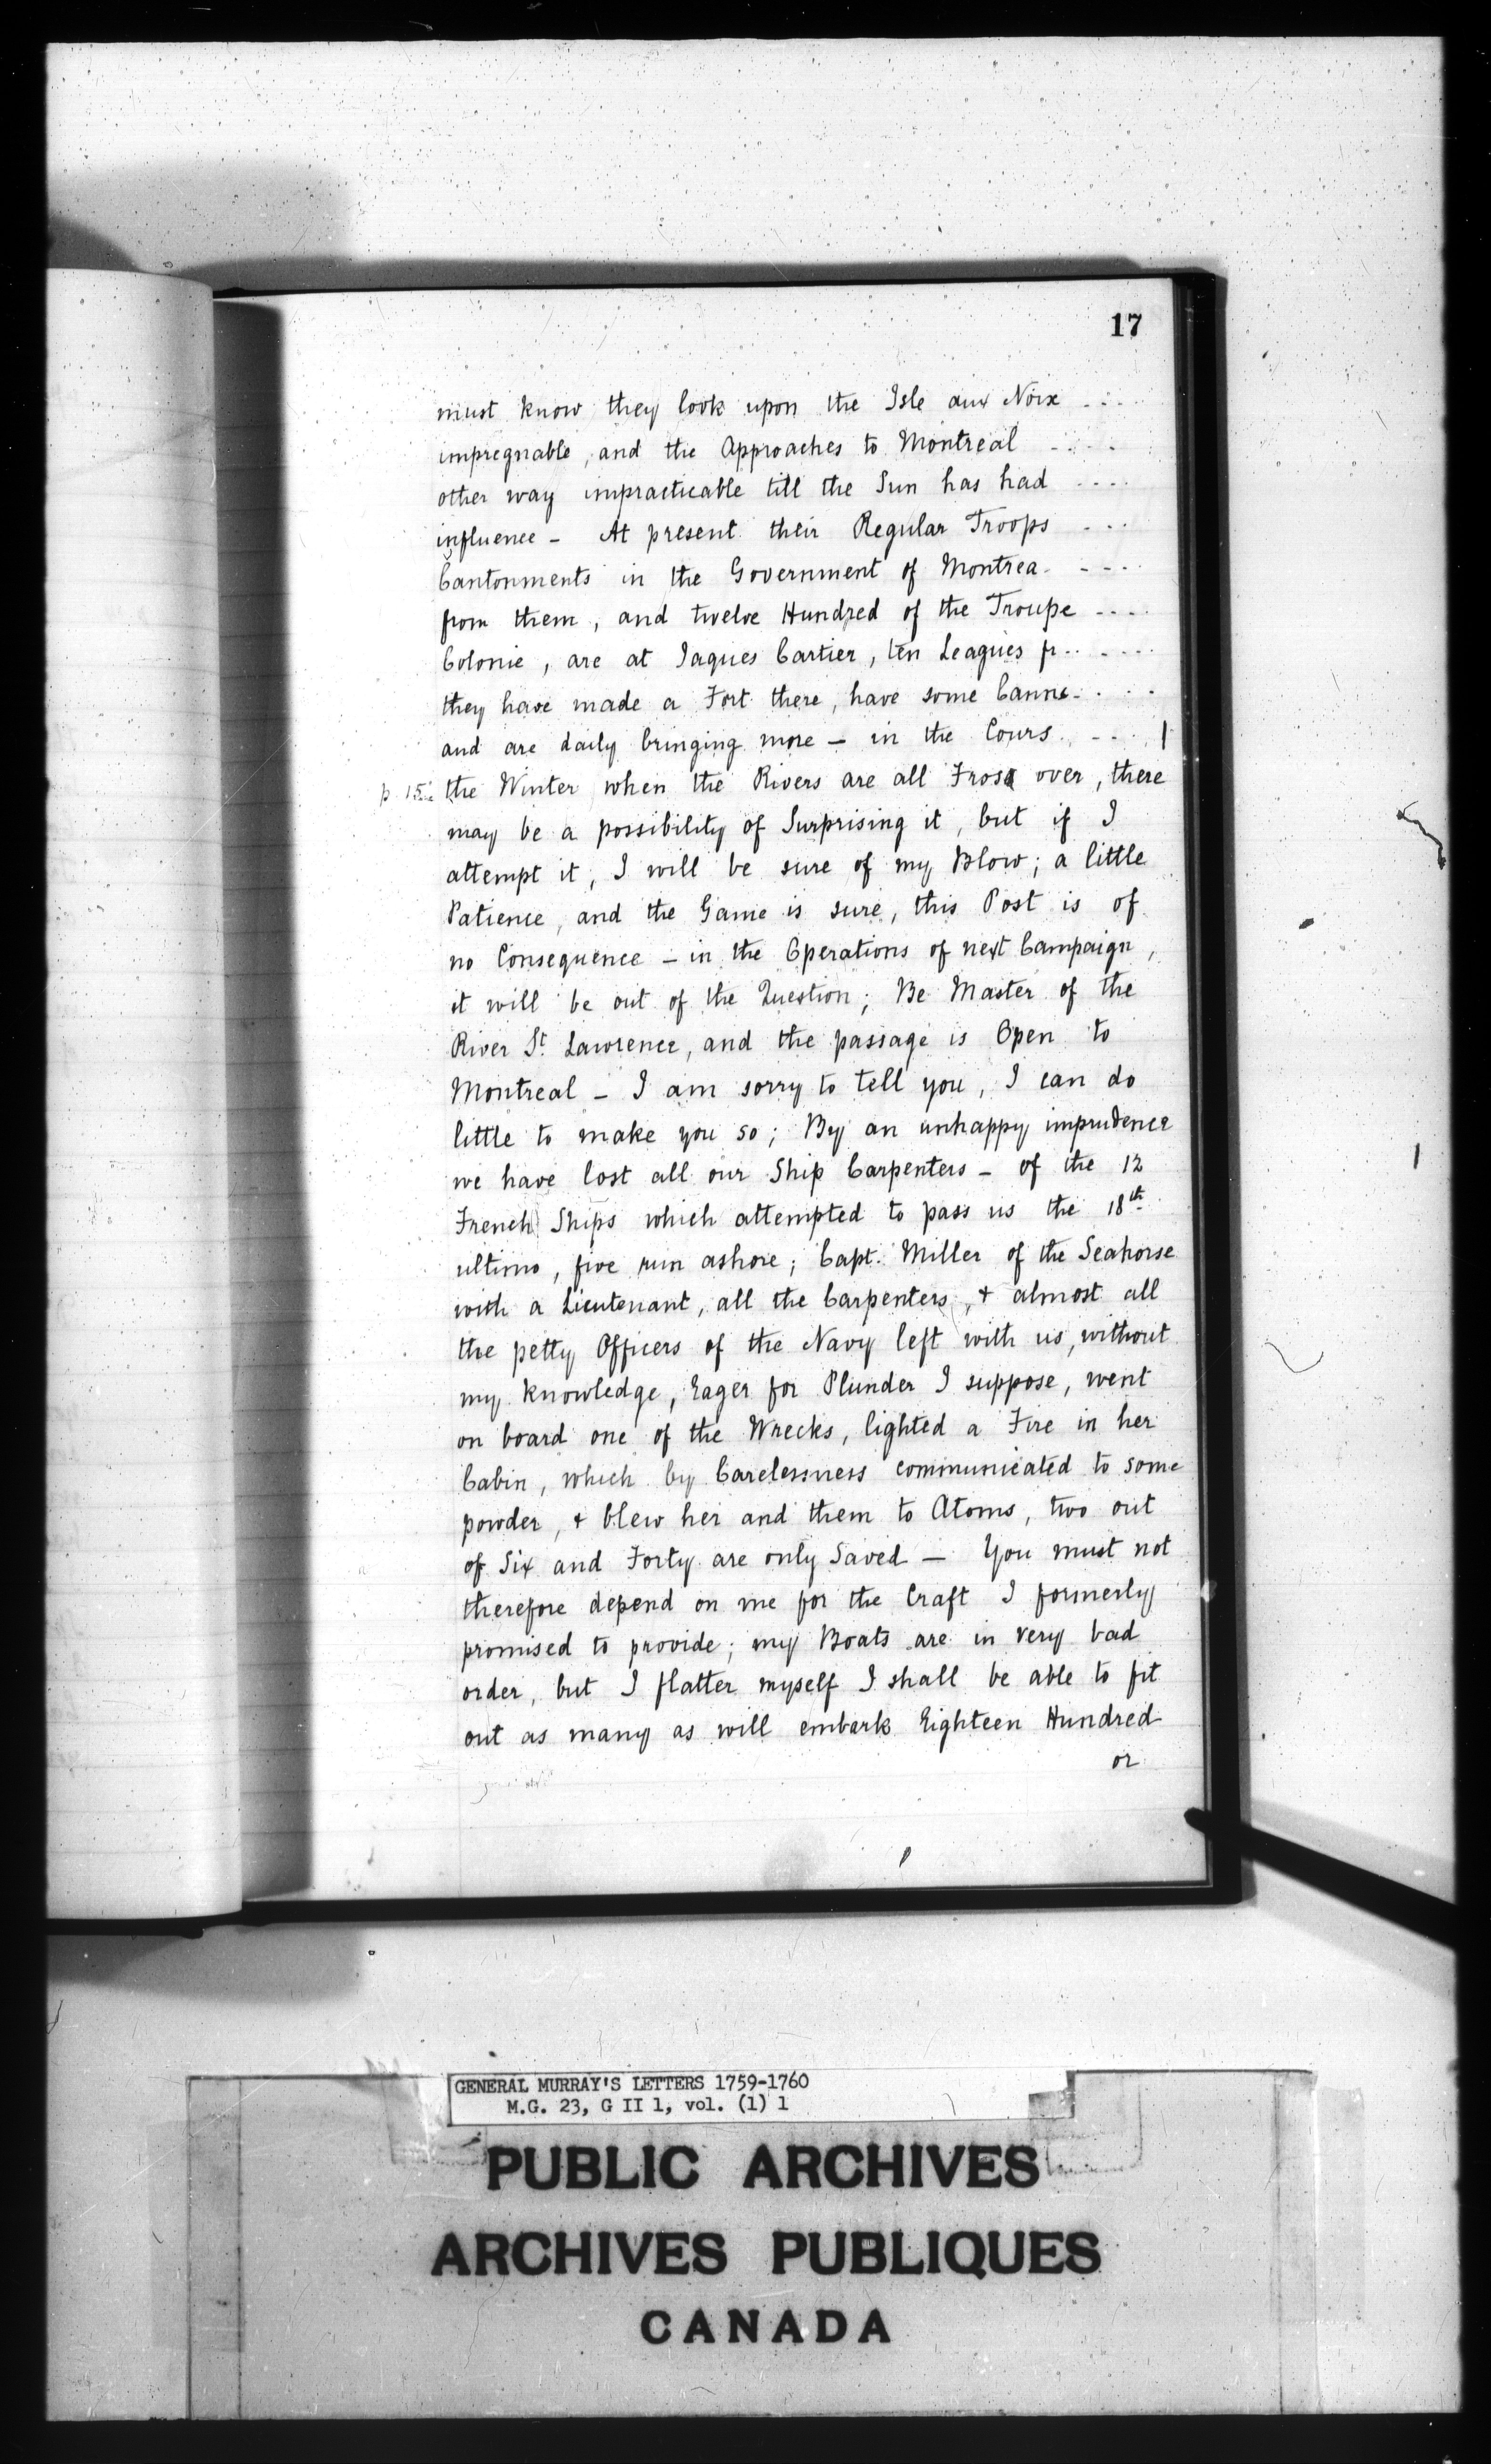 17
must know they look upon the Isle aux Noix ....
impregnable, and the Approaches to Montreal ....
other way impracticable till the Sun has had ....
influence - At present their Regular Troops ...
Cantonments in the Government of Montrea. ....
from them, and twelve Hundred of the Troupe ....
Colonie, are at Jaques Cartier, ten Leagues fr.. ....
they have made a Fort there, have some Canno. ...
and are daily bringing more - in the Cours. ...
p 15. the Winter when the Rivers are all Frose over, there
may be a possibility of Surprising it, but if I
attempt it, I will be sure of my Blow; a little
Patience, and the Game is sure, this Post is of
no Consequence - in the Operations of next Campaign,
it will be out of the Question; Be Master of the
River St. Lawrence, and the passage is Open to
Montreal - I am sorry to tell you, I can do
little to make you so; By an unhappy imprudence
we have lost all our Ship Carpenters - of the 12
French Ships which attempted to pass us the 18th
ultimo, five run ashore; Capt. Miller of the Seahorse
with a Lieutenant, all the Carpenters, & almost all
the petty Officers of the Navy left with us, without
my knowledge, Eager for Plunder I suppose, went
on board one of the Wrecks, lighted a Fire in her
Cabin, which by Carelessness communicated to some
powder, & blew her and them to Atoms, two out
of Six and Forty are only Saved - You must not
therefore depend on me for the Craft I formerly
promised to provide; my Boats are in very bad
order, but I flatter myself I shall be able to fit
out as many as will embark Eighteen Hundred
or
GENERAL MURRAY'S LETTERS 1759-1760
M.G. 23, G II 1, vol. (1) 1
PUBLIC ARCHIVES
ARCHIVES PUBLIQUES
CANADA